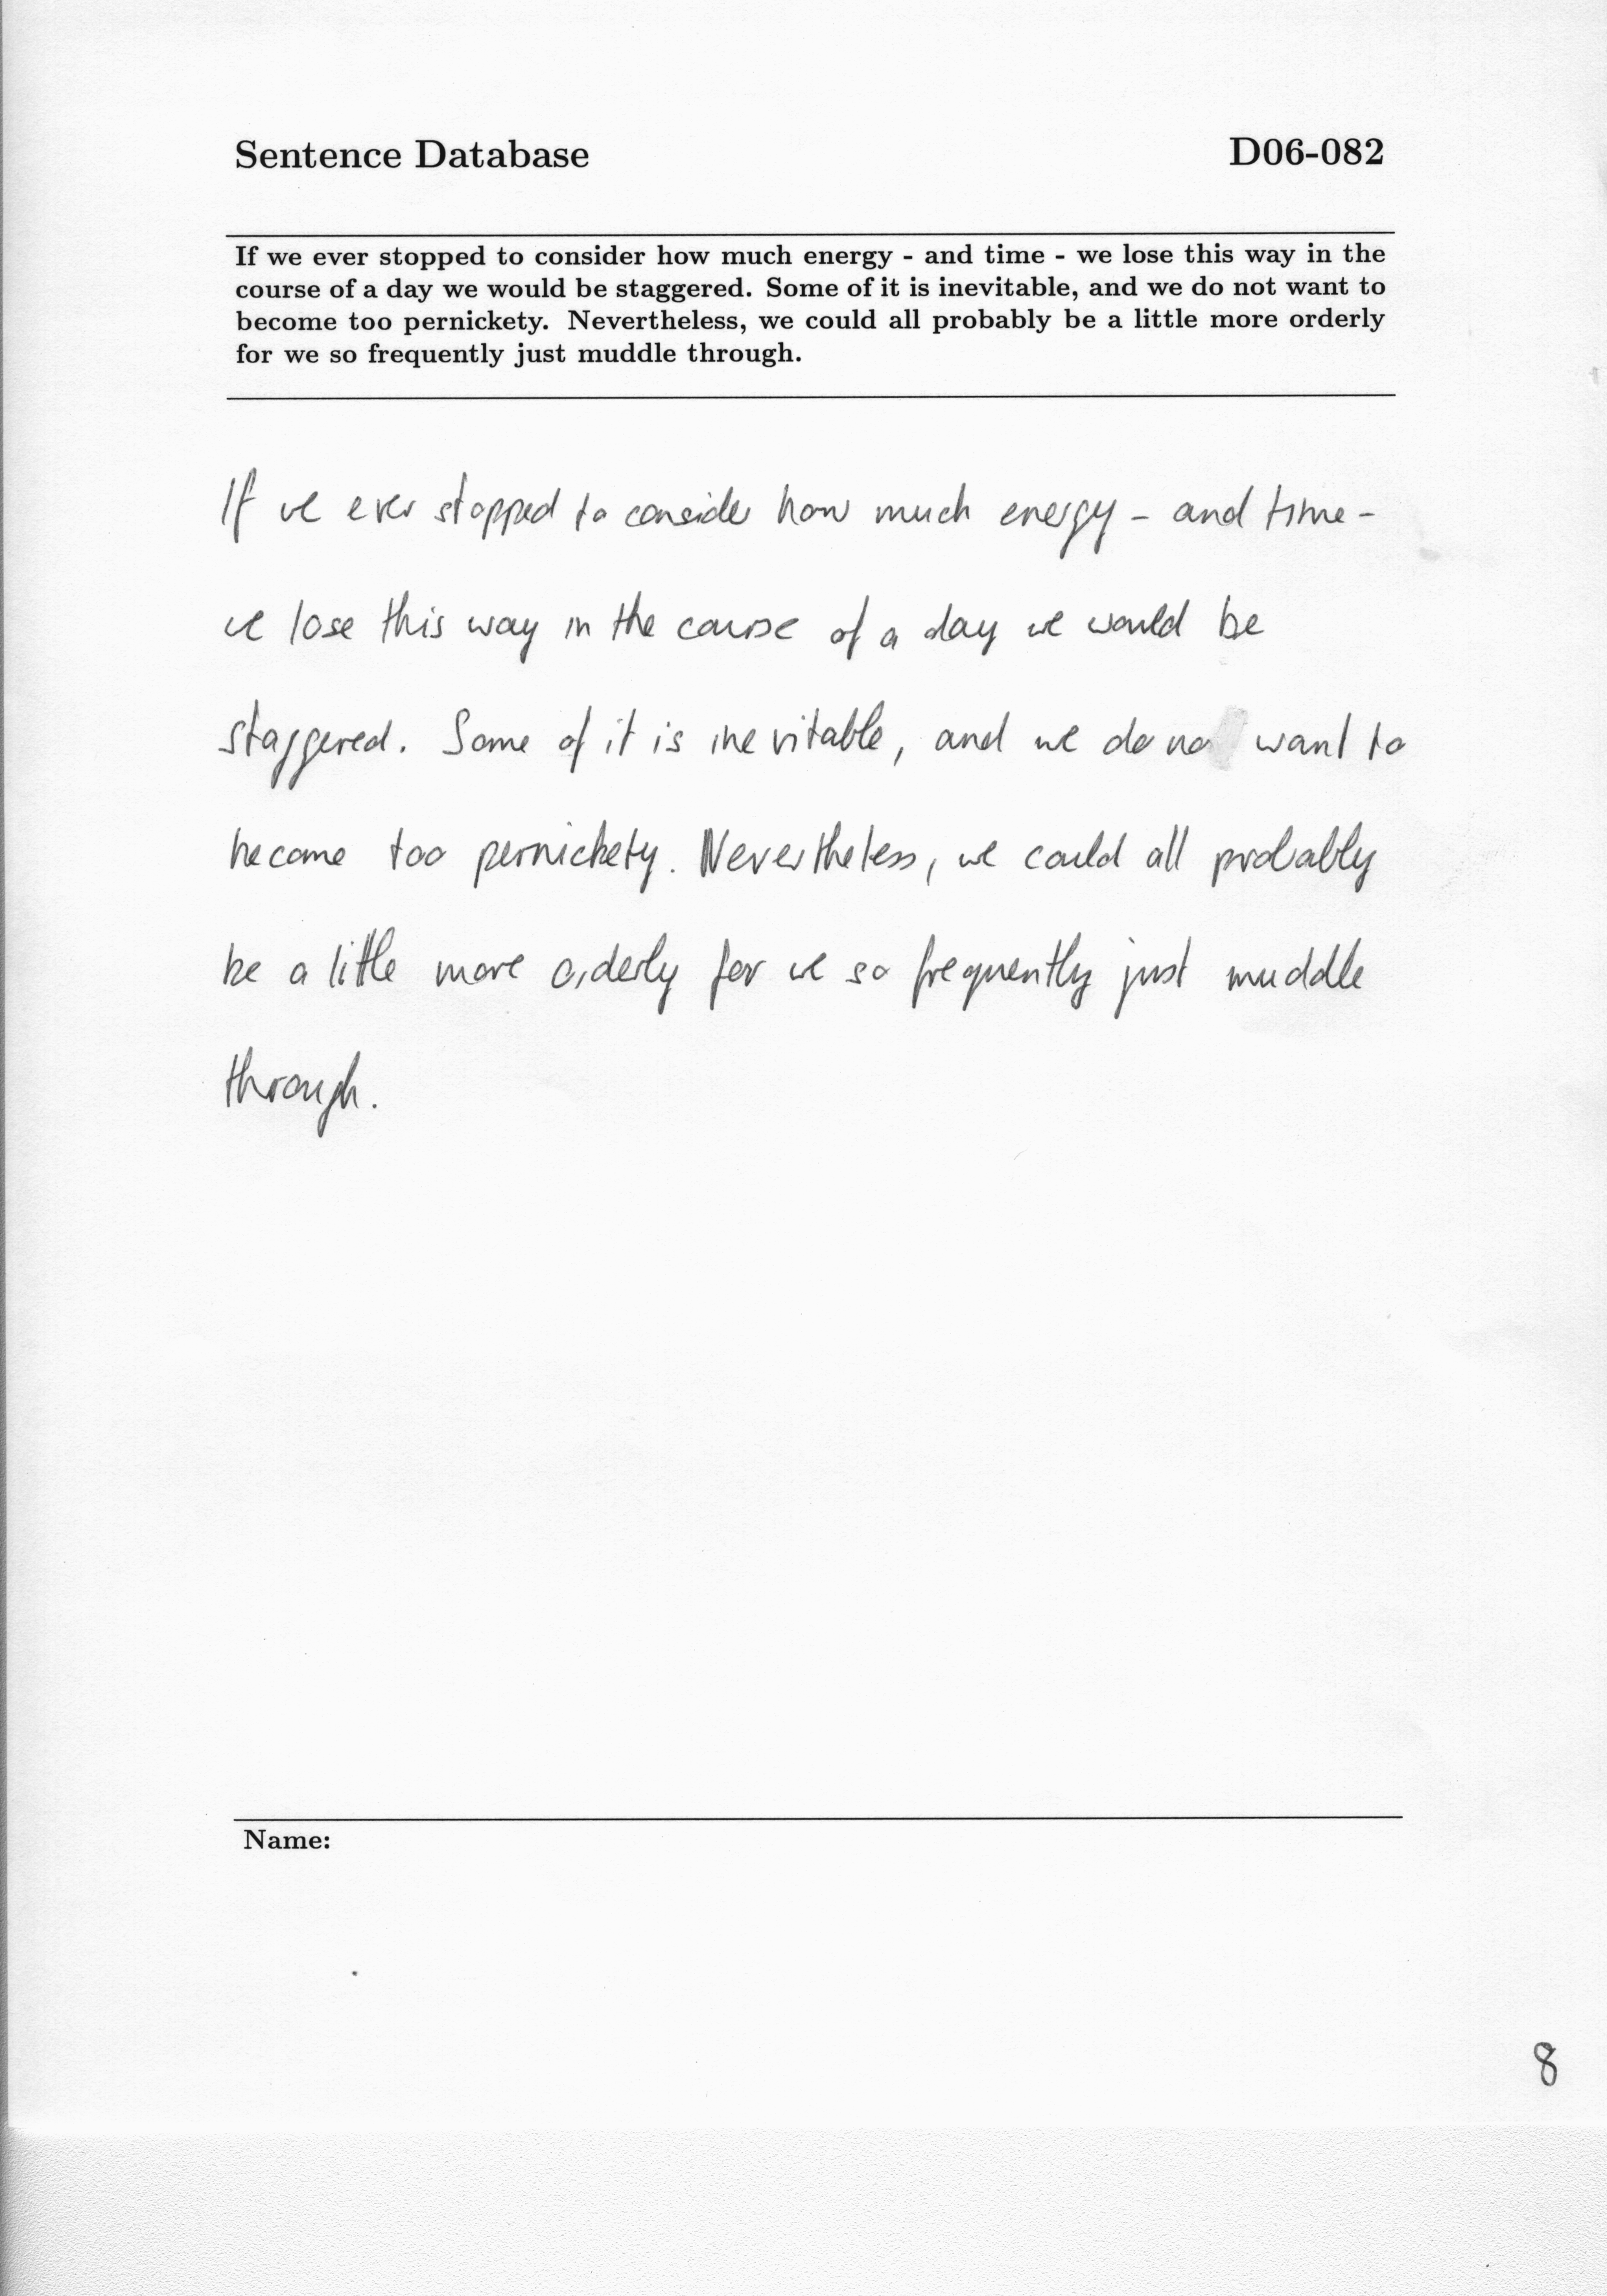 Sentence Database D06-082
If we ever stopped to consider how much energy - and time - we lose this way in the
course of a day we would be staggered. Some of it is inevitable, and we do not want to
become too pernickety. Nevertheless, we could all probably be a little more orderly
for we so frequently just muddle through.
If we ever stopped to consider how much energy - and time -
we lose this way in the course of a day we would be
staggered. Some of it is inevitable, and we do no want to
become too pernickety. Nevertheless, we could all probably
be a little more orderly for we so frequently just muddle
through.
Name:
8